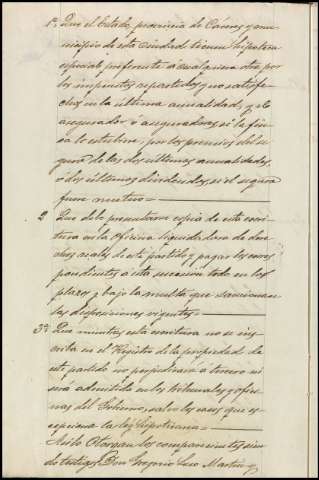 1º Que el Estado, provincia de Cáceres y mu-
nicipio de esta Ciudad tienen hipoteca
especial y preferente á cualquiera otra por
los impuestos repartidos y no satisfe-
chos en la última anualidad, y el
asegurador ó aseguradores si la fin-
ca lo estubiere, por los premios del se-
guro de las dos últimas anualidades,
ó dos últimos dividendos, si el seguro
fuere mutuo=
2 Que debe presentarse copia de esta escri-
tura en la oficina liquidadora de dere-
chos reales de este partido y pagar los corres-
pondientes á esta sucesion todo en los
plazos y bajo la multa que
las disposiciones vigentes=
3º Que mientras esta escritura no se ins-
criba en el Registro de la propiedad de
este partido no perjudicará á tercero ni
será admitida en los tribunales y ofici-
nas del Gobierno, salvo los casos que es-
cepciona la ley hipotecaria=
Asi lo Otorgan los comparecientes sien-
do testigos Don Gregorio Martin y